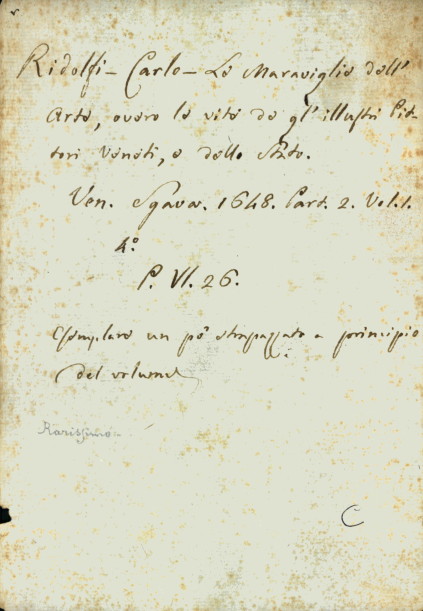 Ridolfi - Carlo - Le Maraviglie dell'
Arte, overo le vite de gl' illustri Pit-
tori Veneti, e dello Stato.
Ven. Sgava. 1648. Part. 2. Vol. 1.
4.º
P. VI. 26.
Esemplare un pò strapazzato a principio
del volume
Rarissimo
C